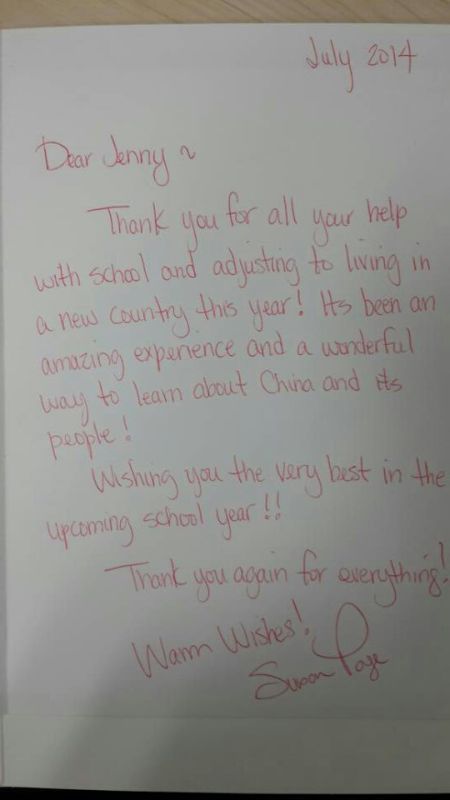 July 2014
Dear Jenny ~
Thank you for all your help
with school and adjusting to living in
a new country this year! Its been an
amazing experience and a wonderful
way to learn about China and its
people!
Wishing you the very best in the
upcoming school year!!
Thank you again for everything!
Warm Wishes!
Susan Page